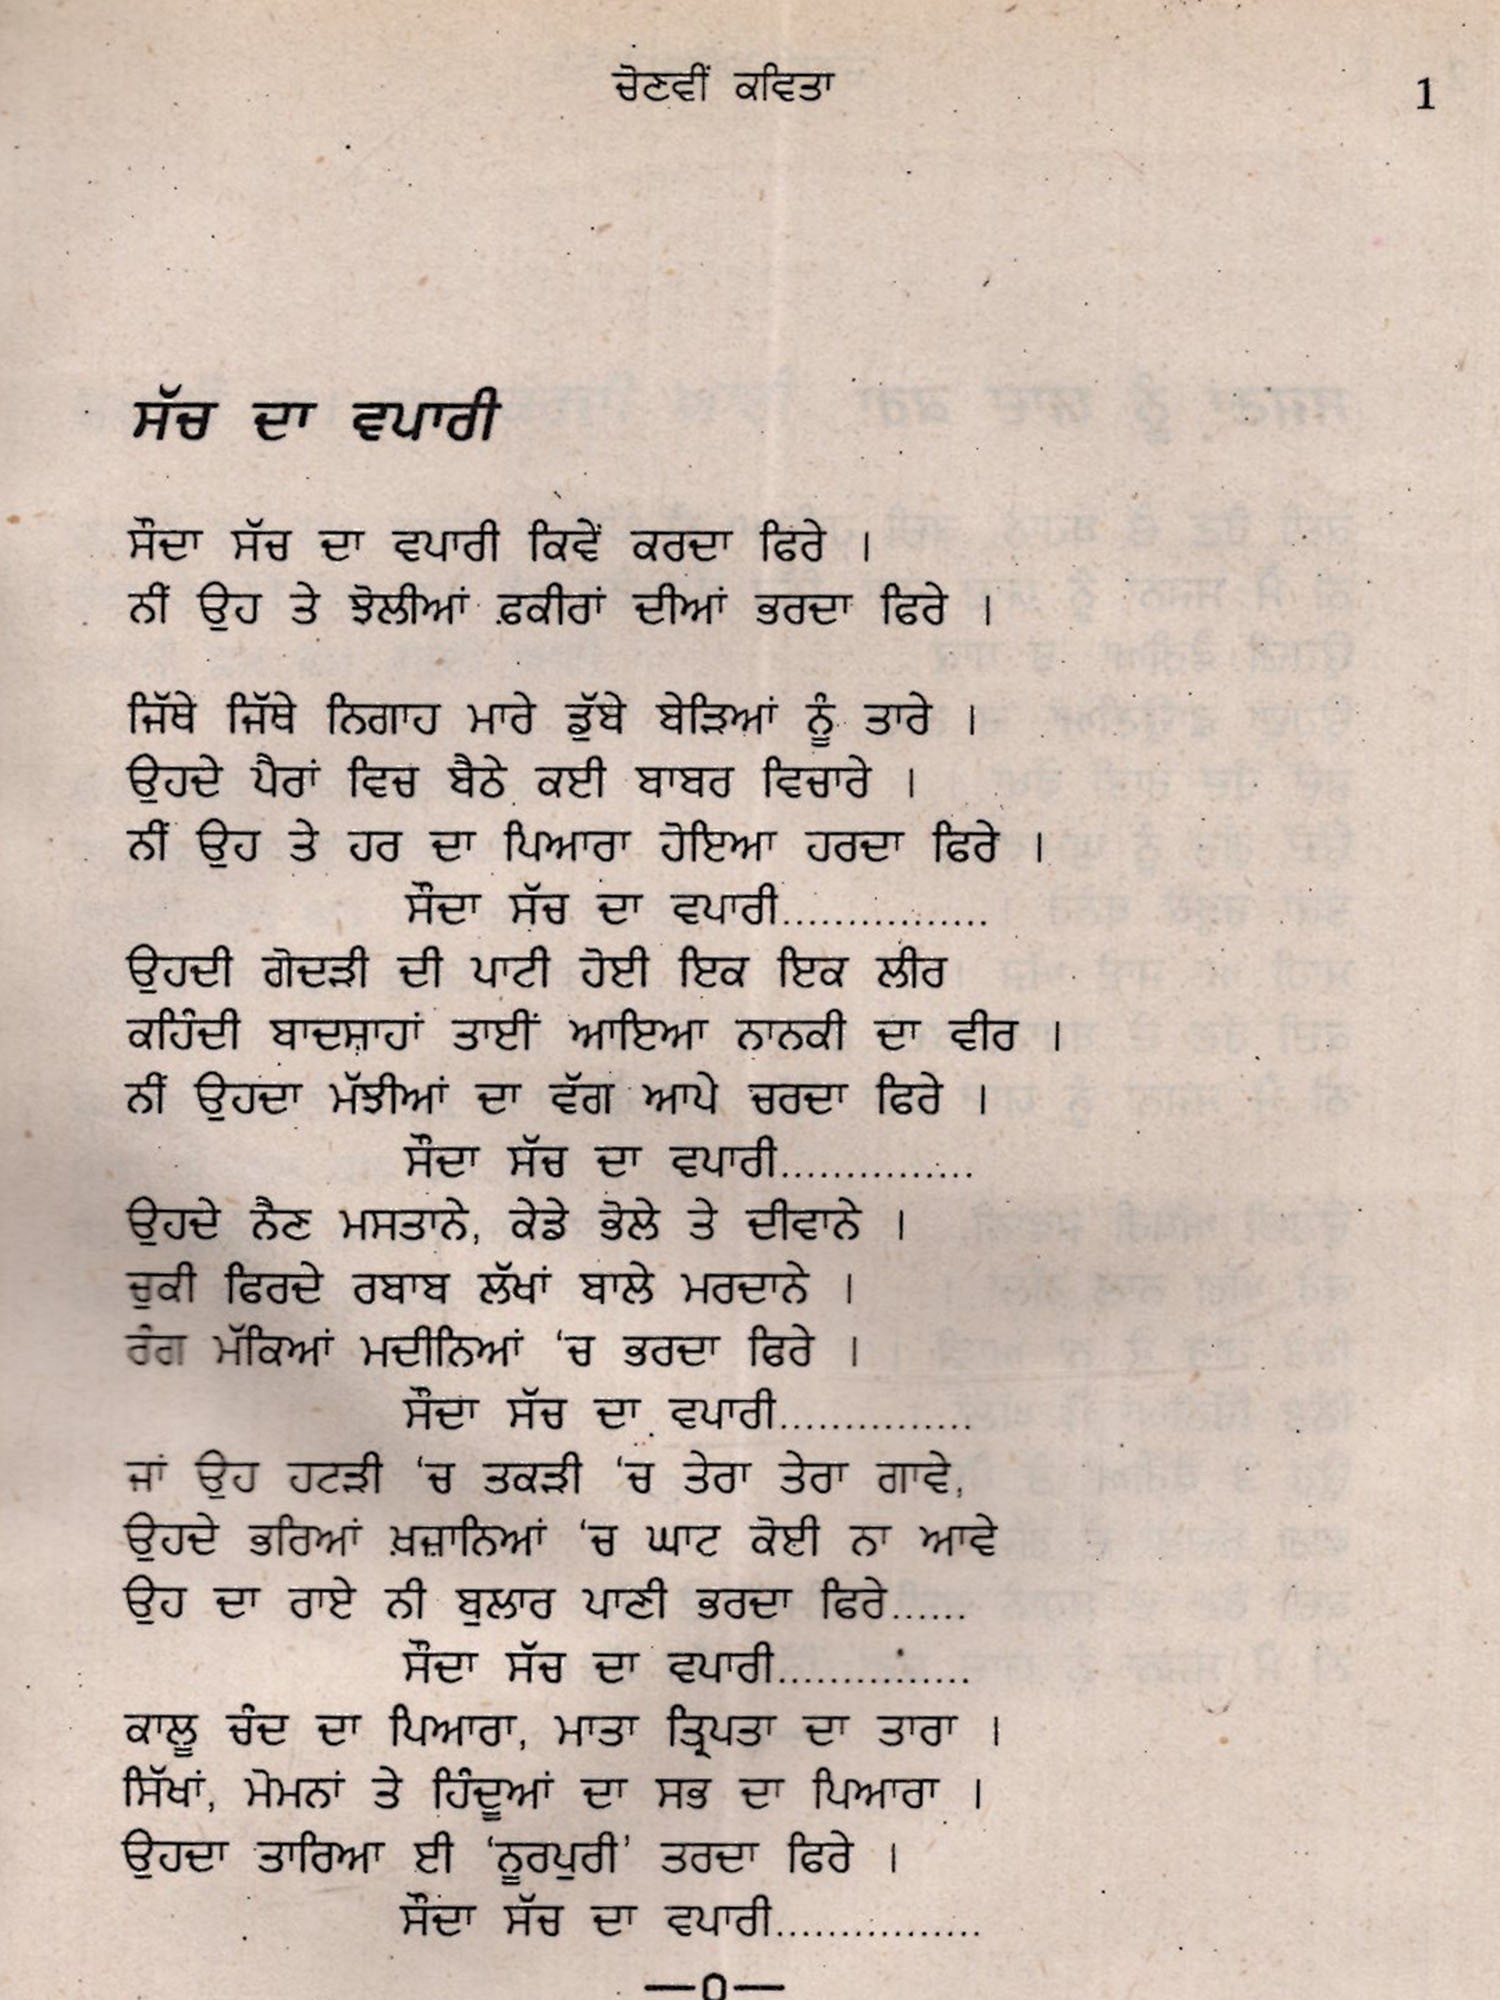 ਚੋਣਵੀਂ ਕਵਿਤਾ
1
ਸੱਚ ਦਾ ਵਪਾਰੀ
ਸੌਦਾ ਸੱਚ ਦਾ ਵਪਾਰੀ ਕਿਵੇਂ ਕਰਦਾ ਫਿਰੇ ।
ਨੀਂ ਉਹ ਤੇ ਝੋਲੀਆਂ ਫ਼ਕੀਰਾਂ ਦੀਆਂ ਭਰਦਾ ਫਿਰੇ ।
ਜਿੱਥੇ ਜਿੱਥੇ ਨਿਗਾਹ ਮਾਰੇ ਡੁੱਬੇ ਬੇੜਿਆਂ ਨੂੰ ਤਾਰੇ ।
ਉਹਦੇ ਪੈਰਾਂ ਵਿਚ ਬੈਠੇ ਕਈ ਬਾਬਰ ਵਿਚਾਰੇ ।
ਨੀਂ ਉਹ ਤੇ ਹਰ ਦਾ ਪਿਆਰਾ ਹੋਇਆ ਹਰਦਾ ਫਿਰੇ ।
ਸੌਦਾ ਸੱਚ ਦਾ ਵਪਾਰੀ................
ਉਹਦੀ ਗੋਦੜੀ ਦੀ ਪਾਟੀ ਹੋਈ ਇਕ ਇਕ ਲੀਰ
ਕਹਿੰਦੀ ਬਾਦਸ਼ਾਹਾਂ ਤਾਈਂ ਆਇਆ ਨਾਨਕੀ ਦਾ ਵੀਰ ।
ਨੀਂ ਉਹਦਾ ਮੱਝੀਆਂ ਦਾ ਵੱਗ ਆਪੇ ਚਰਦਾ ਫਿਰੇ ।
ਸੌਦਾ ਸੱਚ ਦਾ ਵਪਾਰੀ...............
ਉਹਦੇ ਨੈਣ ਮਸਤਾਨੇ, ਕੇਡੇ ਭੋਲੇ ਤੇ ਦੀਵਾਨੇ ।
ਚੁਕੀ ਫਿਰਦੇ ਰਬਾਬ ਲੱਖਾਂ ਬਾਲੇ ਮਰਦਾਨੇ ।
ਰੰਗ ਮੱਕਿਆਂ ਮਦੀਨਿਆਂ ‘ਚ ਭਰਦਾ ਫਿਰੇ ।
ਸੌਦਾ ਸੱਚ ਦਾ ਵਪਾਰੀ...............
ਜਾਂ ਉਹ ਹਟੜੀ ‘ਚ ਤਕੜੀ ‘ਚ ਤੇਰਾ ਤੇਰਾ ਗਾਵੇ,
ਉਹਦੇ ਭਰਿਆਂ ਖ਼ਜ਼ਾਨਿਆਂ ‘ਚ ਘਾਟ ਕੋਈ ਨਾ ਆਵੇ
ਉਹ ਦਾ ਰਾਏ ਨੀ ਬੁਲਾਰ ਪਾਣੀ ਭਰਦਾ ਫਿਰੇ......
ਸੌਦਾ ਸੱਚ ਦਾ ਵਪਾਰੀ...............
ਕਾਲੂ ਚੰਦ ਦਾ ਪਿਆਰਾ, ਮਾਤਾ ਤ੍ਰਿਪਤਾ ਦਾ ਤਾਰਾ ।
ਸਿੱਖਾਂ, ਮੋਮਨਾਂ ਤੇ ਹਿੰਦੂਆਂ ਦਾ ਸਭ ਦਾ ਪਿਆਰਾ ।
ਉਹਦਾ ਤਾਰਿਆ ਈ ‘ਨੂਰਪੁਰੀ’ ਤਰਦਾ ਫਿਰੇ ।
ਸੌਦਾ ਸੱਚ ਦਾ ਵਪਾਰੀ................
—0—